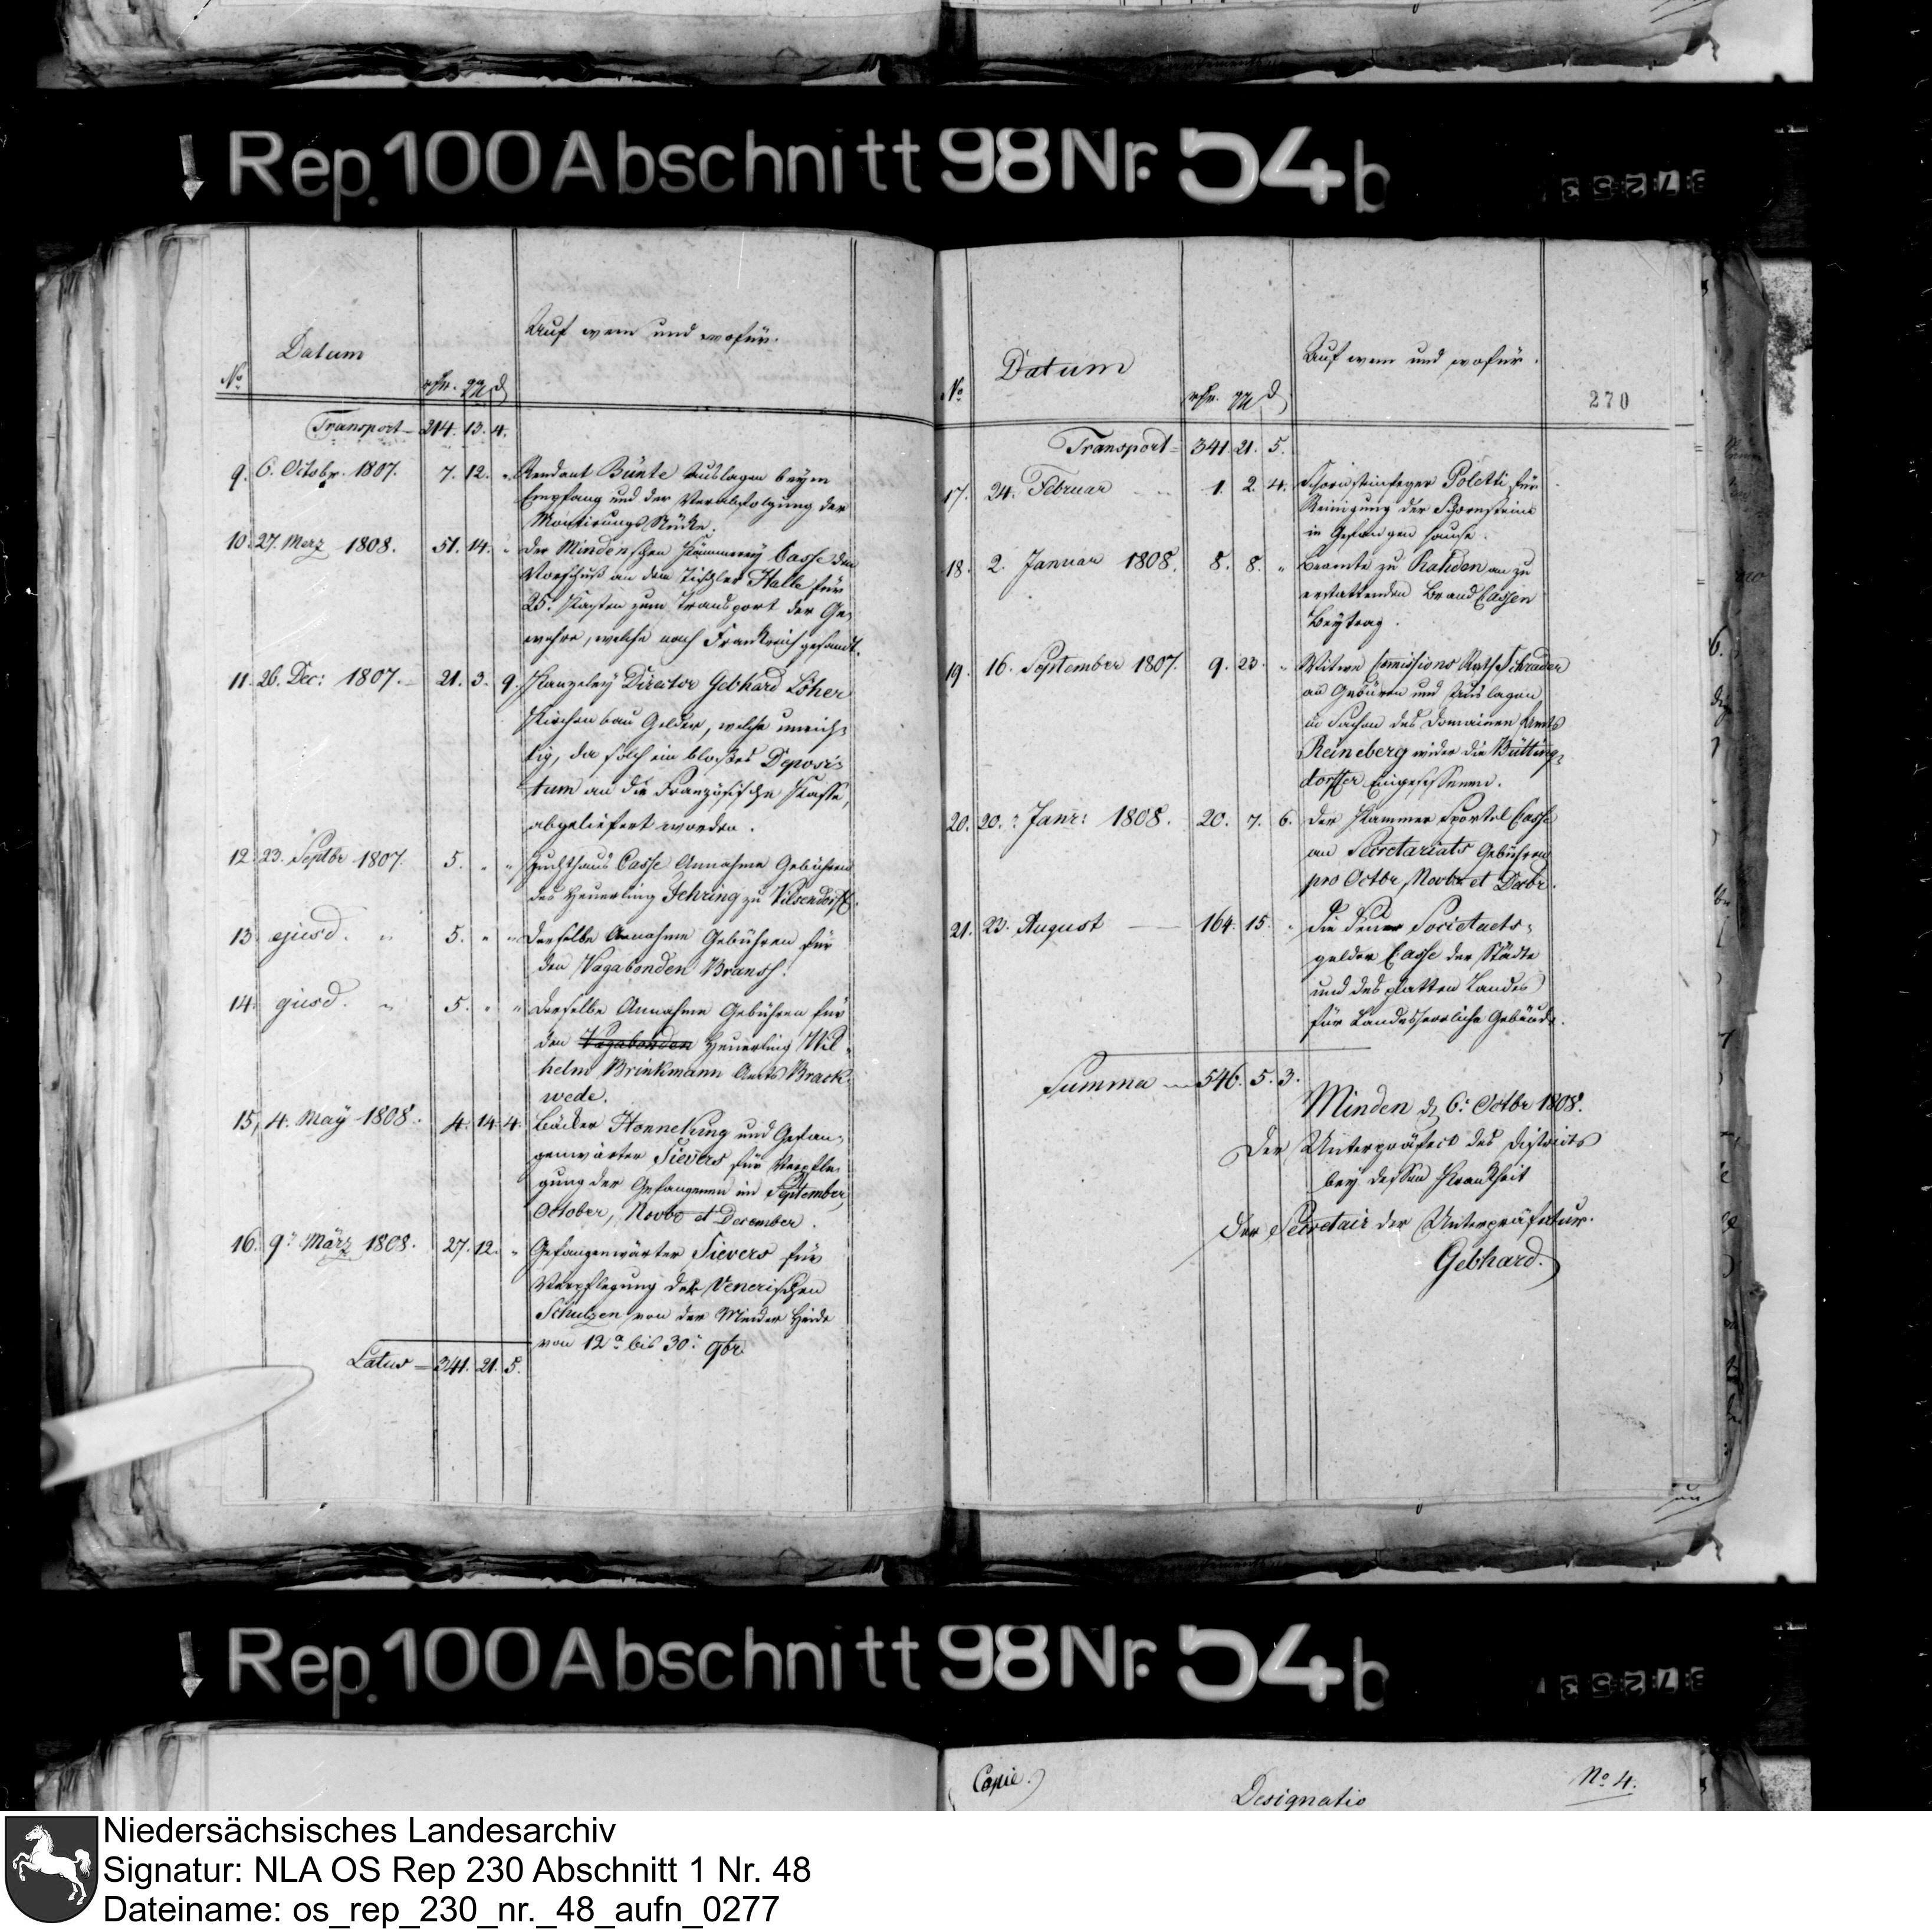 Rep. 100 Abschnitt 98 Nr. 54 b
Datum
Auf wem und wofür.
No
rthr. ggr d
Transport 214. 13. 4.
9. 6. Octobr. 1807. 7. 12. " Rendant Bünte Auslagen beym
Empfang und der Verabfolgung der
Montirungs Stücke.
10. 27. Merz 1808. 51. 14. " Der Mindenschen Kämmerey Casse den
Vorschuß an den Tischler Halle für
25. Kasten zum Transport der Ge-
wehre, welche nach Frankreich gesandt.
11. 26. Dec: 1807. 21. 3. 9. Kanzeley Director Gebhard Löher
Kirchenbau Gelder, welche unrich-
tig, da solch ein bloßes Deposi-
tum an die Französische Kasse,
abgeliefert worden.
12. 23. Septbr 1807. 5. " " Zuchthaus Casse Annahme Gebühren
des Heuerling Jehring zu Vilsendorff.
13. ejusd. " 5. " " Derselbe Annahme Gebühren für
den Vagabonden Bransch.
14. ejusd. " 5. " " Derselbe Annahme Gebühren für
den Vagabonden Heuerling Wil-
helm Brinkmann Amts Brack-
wede.
15, 4. May 1808. 4. 14. 4. Bäcker Honneking und Gefan-
genwärter Sievers für Verpfle-
gung der Gefangenen im September,
October, Novbr et December.
16. 9. März 1808. 27. 12. " Gefangenwärter Sievers für
Verpflegung der Venerischen
Schulzen von der Minder Heide
von 12. bis 30. 9br
Latus 341. 21. 5.
Datum
Auf wem und wofür.
No
rthr. ggr d
270
Transport 341. 21. 5.
17. 24. Februar " 1. 2. 4. Schornsteinfeger Poletti für
Reinigung der Schornsteine
in Gefangenhause.
18. 2. Januar 1808. 8. 8. " Beamte zu Rahden an zu
erstattenden Brand Cassen
Beytrag.
19. 16. September 1807. 9. 23. " Witwe Commissions Rath Schrader
an Gebüren und Auslagen
in Sachen des Domainen Amts
Reineberg wider die Bütting-
dorffer Eingesessenen.
20. 20. Janr: 1808. 20. 7. 6. Der Kammer Sportel Casse
an Secretariats Gebühren
pro Octbr, Novbr et Decbr.
21. 23. August 164. 15. " Die Feuer Societaets-
gelder Casse der Städte
und des platten Landes
für Landesherrliche Gebäude.
Summa 546. 5. 3.
Minden d. 6. Octbr 1808.
Der Unterpräfect des Districts
bey dessen Krankheit
Der Secretair der Unterpräfectur.
Gebhard.
Rep. 100 Abschnitt 98 Nr. 54 b
Copie.
Designatio
No 4.
Niedersächsisches Landesarchiv
Signatur: NLA OS Rep 230 Abschnitt 1 Nr. 48
Dateiname: os_rep_230_nr._48_aufn_0277